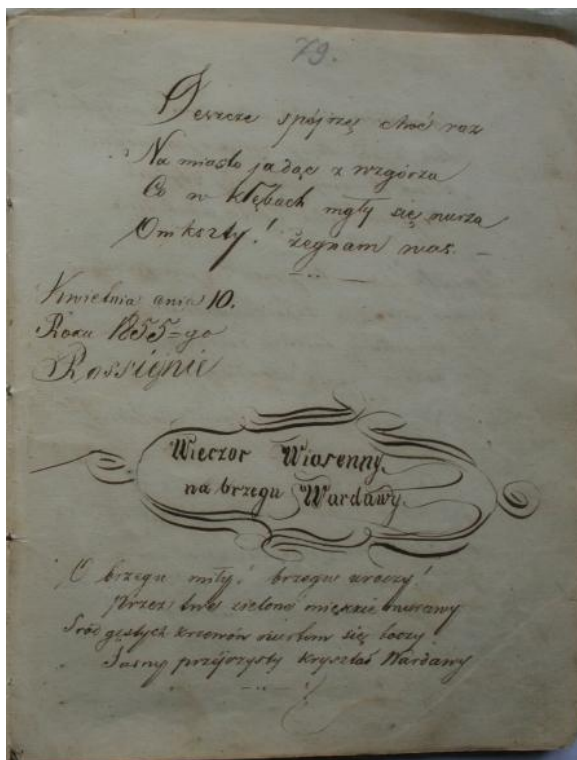 79.
Jeszcze spójrzę choć raz
Na miasto jadąc z wzgórza
Co w kłębach mgły się nurza
Onikszty! żegnam was. –
Kwietnia dnia 10.
Roku 1855-go
Rossienie
Wieczor Wiosenny
na brzegu Wardawy.
O brzegu miły! brzegu uroczy!
Przez twe zielone miękkie murawy
Sród gęstych krzewów nurtem się toczy
Jasny przejrzysty kryształ Wardawy